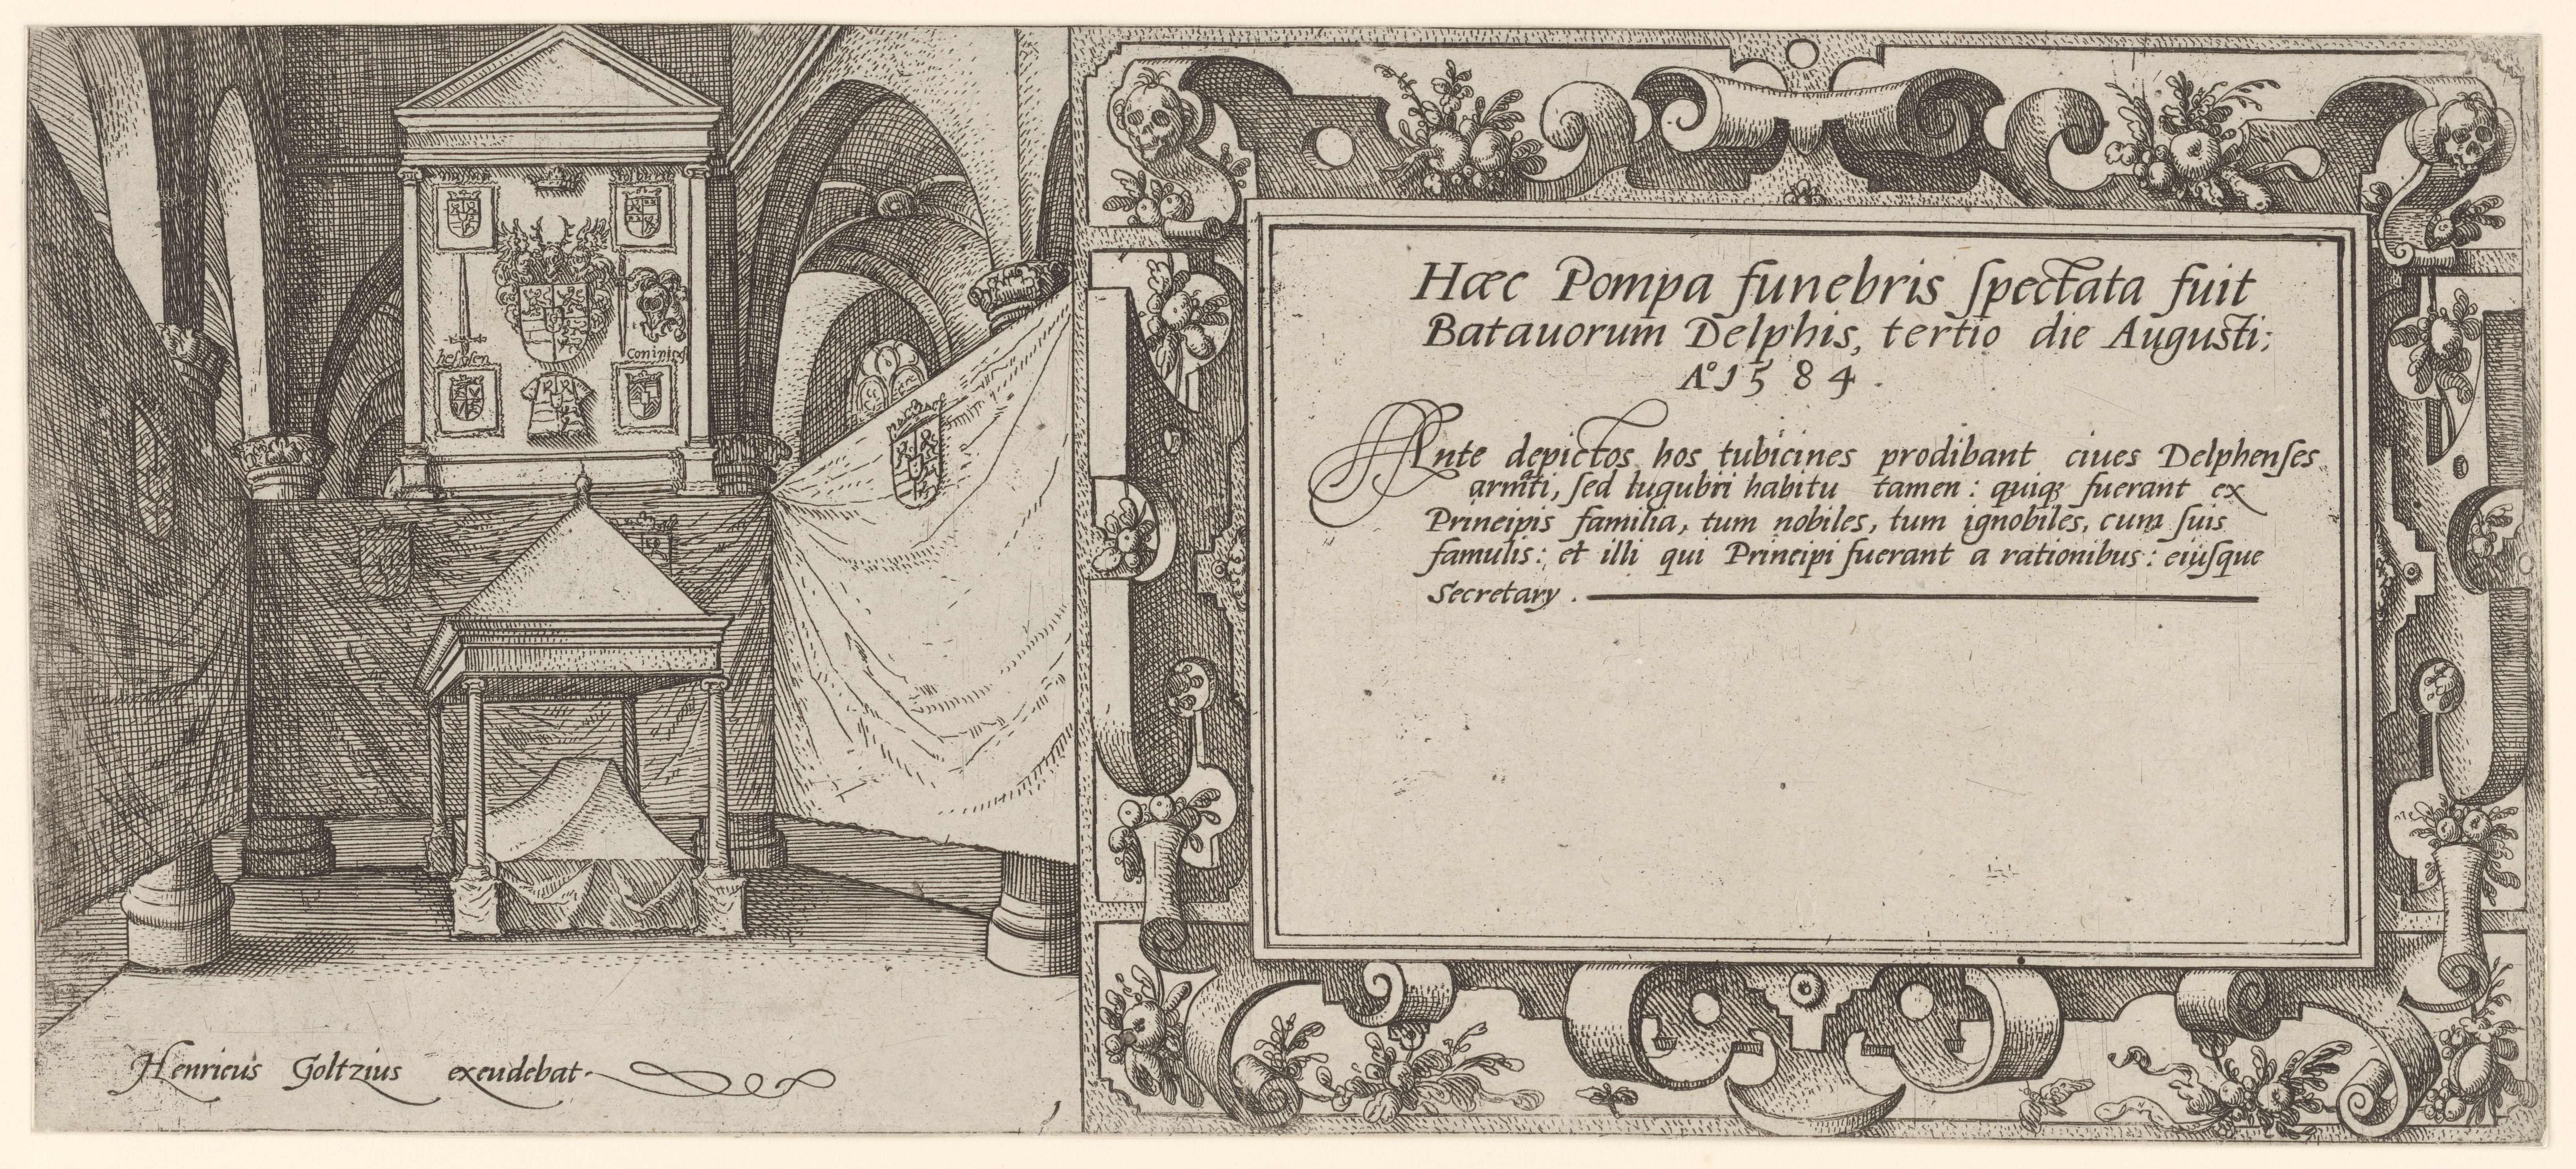 hessen
Henricus Goltzius excudebat.
Hæc Pompa funebris ſpectata fuit
Batauorum Delphis, tertio die Augusti;
Aº 1584.
Ante depictos hos tubicines prodibant ciues Delphenſes
armati, ſed lugubri habitu tamen: quiqꝫ fuerant ex
Principis familia, tum nobiles, tum ignobiles, cum ſuis
famulis: et illi qui Principi fuerant a rationibus: eiuſque
Secretary.